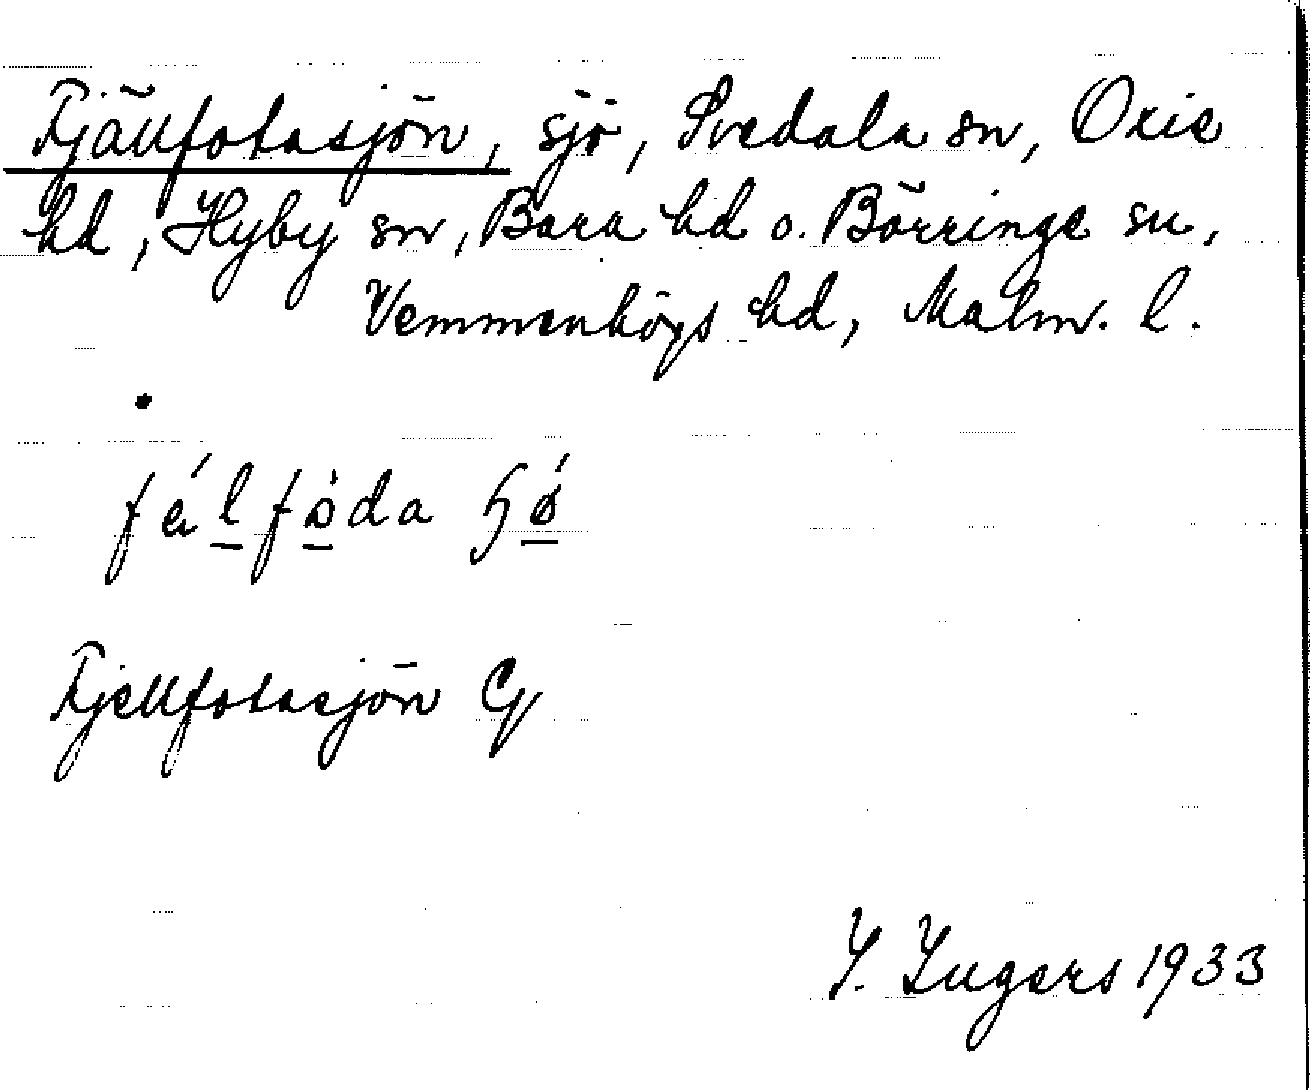 Fjällfotasjön, sjö, Svedala sn, Oxie
hd, Hyby sn, Bara hd o. Börringe sn,
Vemmenhögs hd, Malm. l.
fálfòda ɧǿ
Fjellfotasjön G
I. Ingers 1933